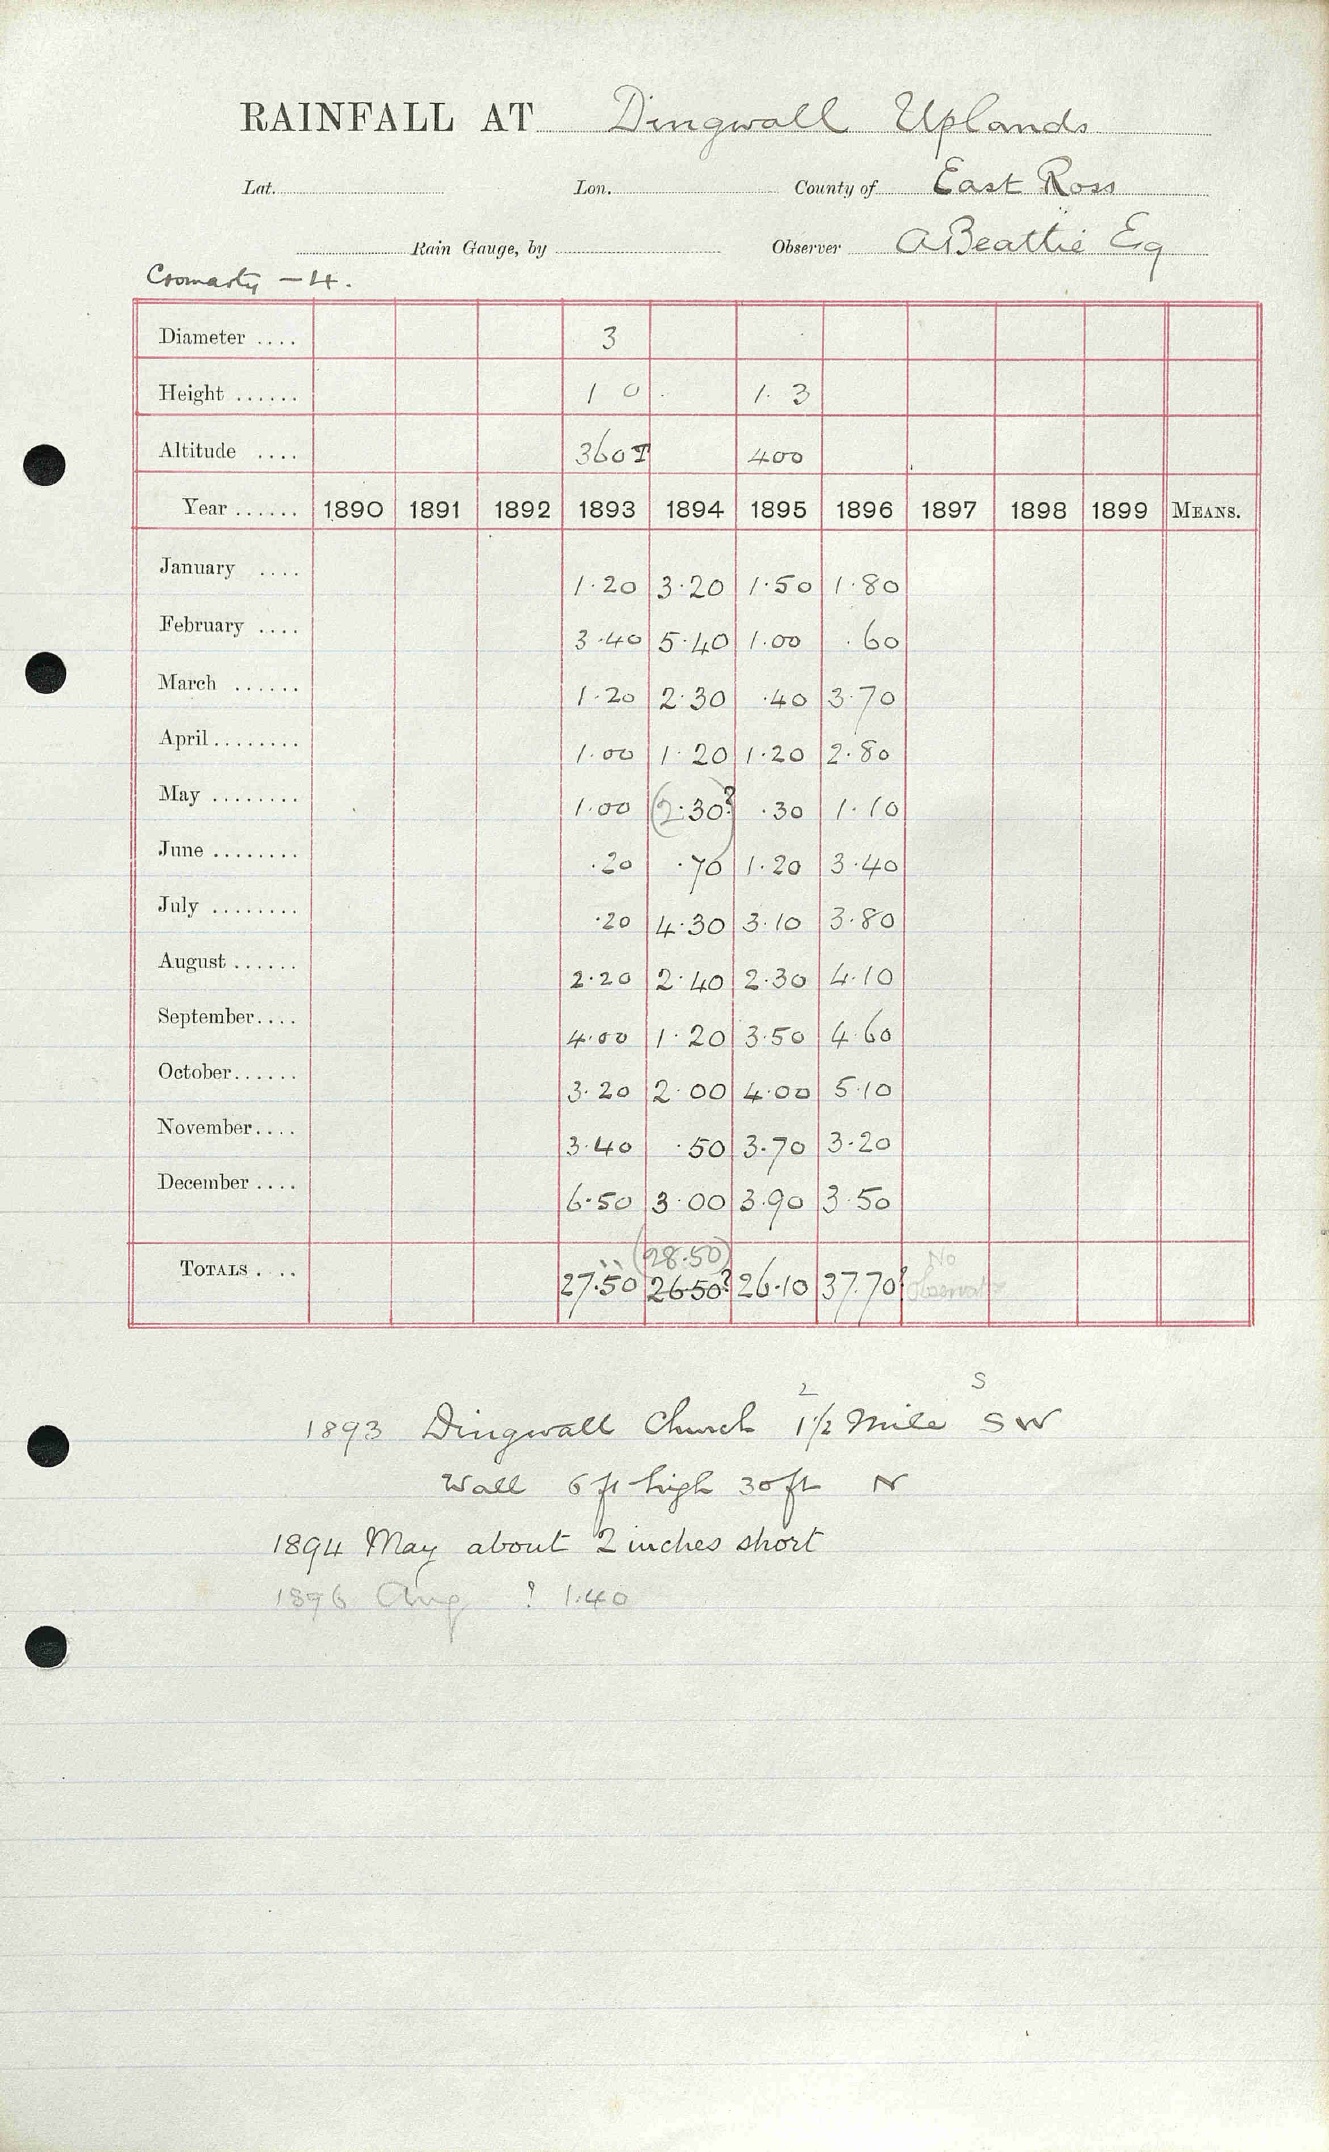 RAINFALL AT Dingwall Uplands
Lat. Lon. County of East Ross
Rain Gauge, by Observer A Beattie Esq
Cromarty - 4.
Diameter .... 3
Height ...... 1 0 1. 3
Altitude .... 360 T 400
Year ...... 1890 1891 1892 1893 1894 1895 1896 1897 1898 1899 MEANS.
January .... 1.20 3.20 1.50 1.80
February .... 3.40 5.40 1.00 .60
March ...... 1.20 2.30 .40 3.70
April........ 1.00 1.20 1.20 2.80
May ........ 1.00 (2.30?) .30 1.10
June ........ .20 .70 1.20 3.40
July ........ .20 4.30 3.10 3.80
August ...... 2.20 2.40 2.30 4.10
September.... 4.00 1.20 3.50 4.60
October...... 3.20 2.00 4.00 5.10
November.... 3.40 .50 3.70 3.20
December .... 6.50 3.00 3.90 3.50
(28.50) No
TOTALS .... 27.50 26.50? 26.10 37.70? Observat
2 S
1893 Dingwall Church 1 1/2 Mile SW
Wall 6 ft high 30 ft N
1894 May about 2 inches short
1896 Aug ? 1.40